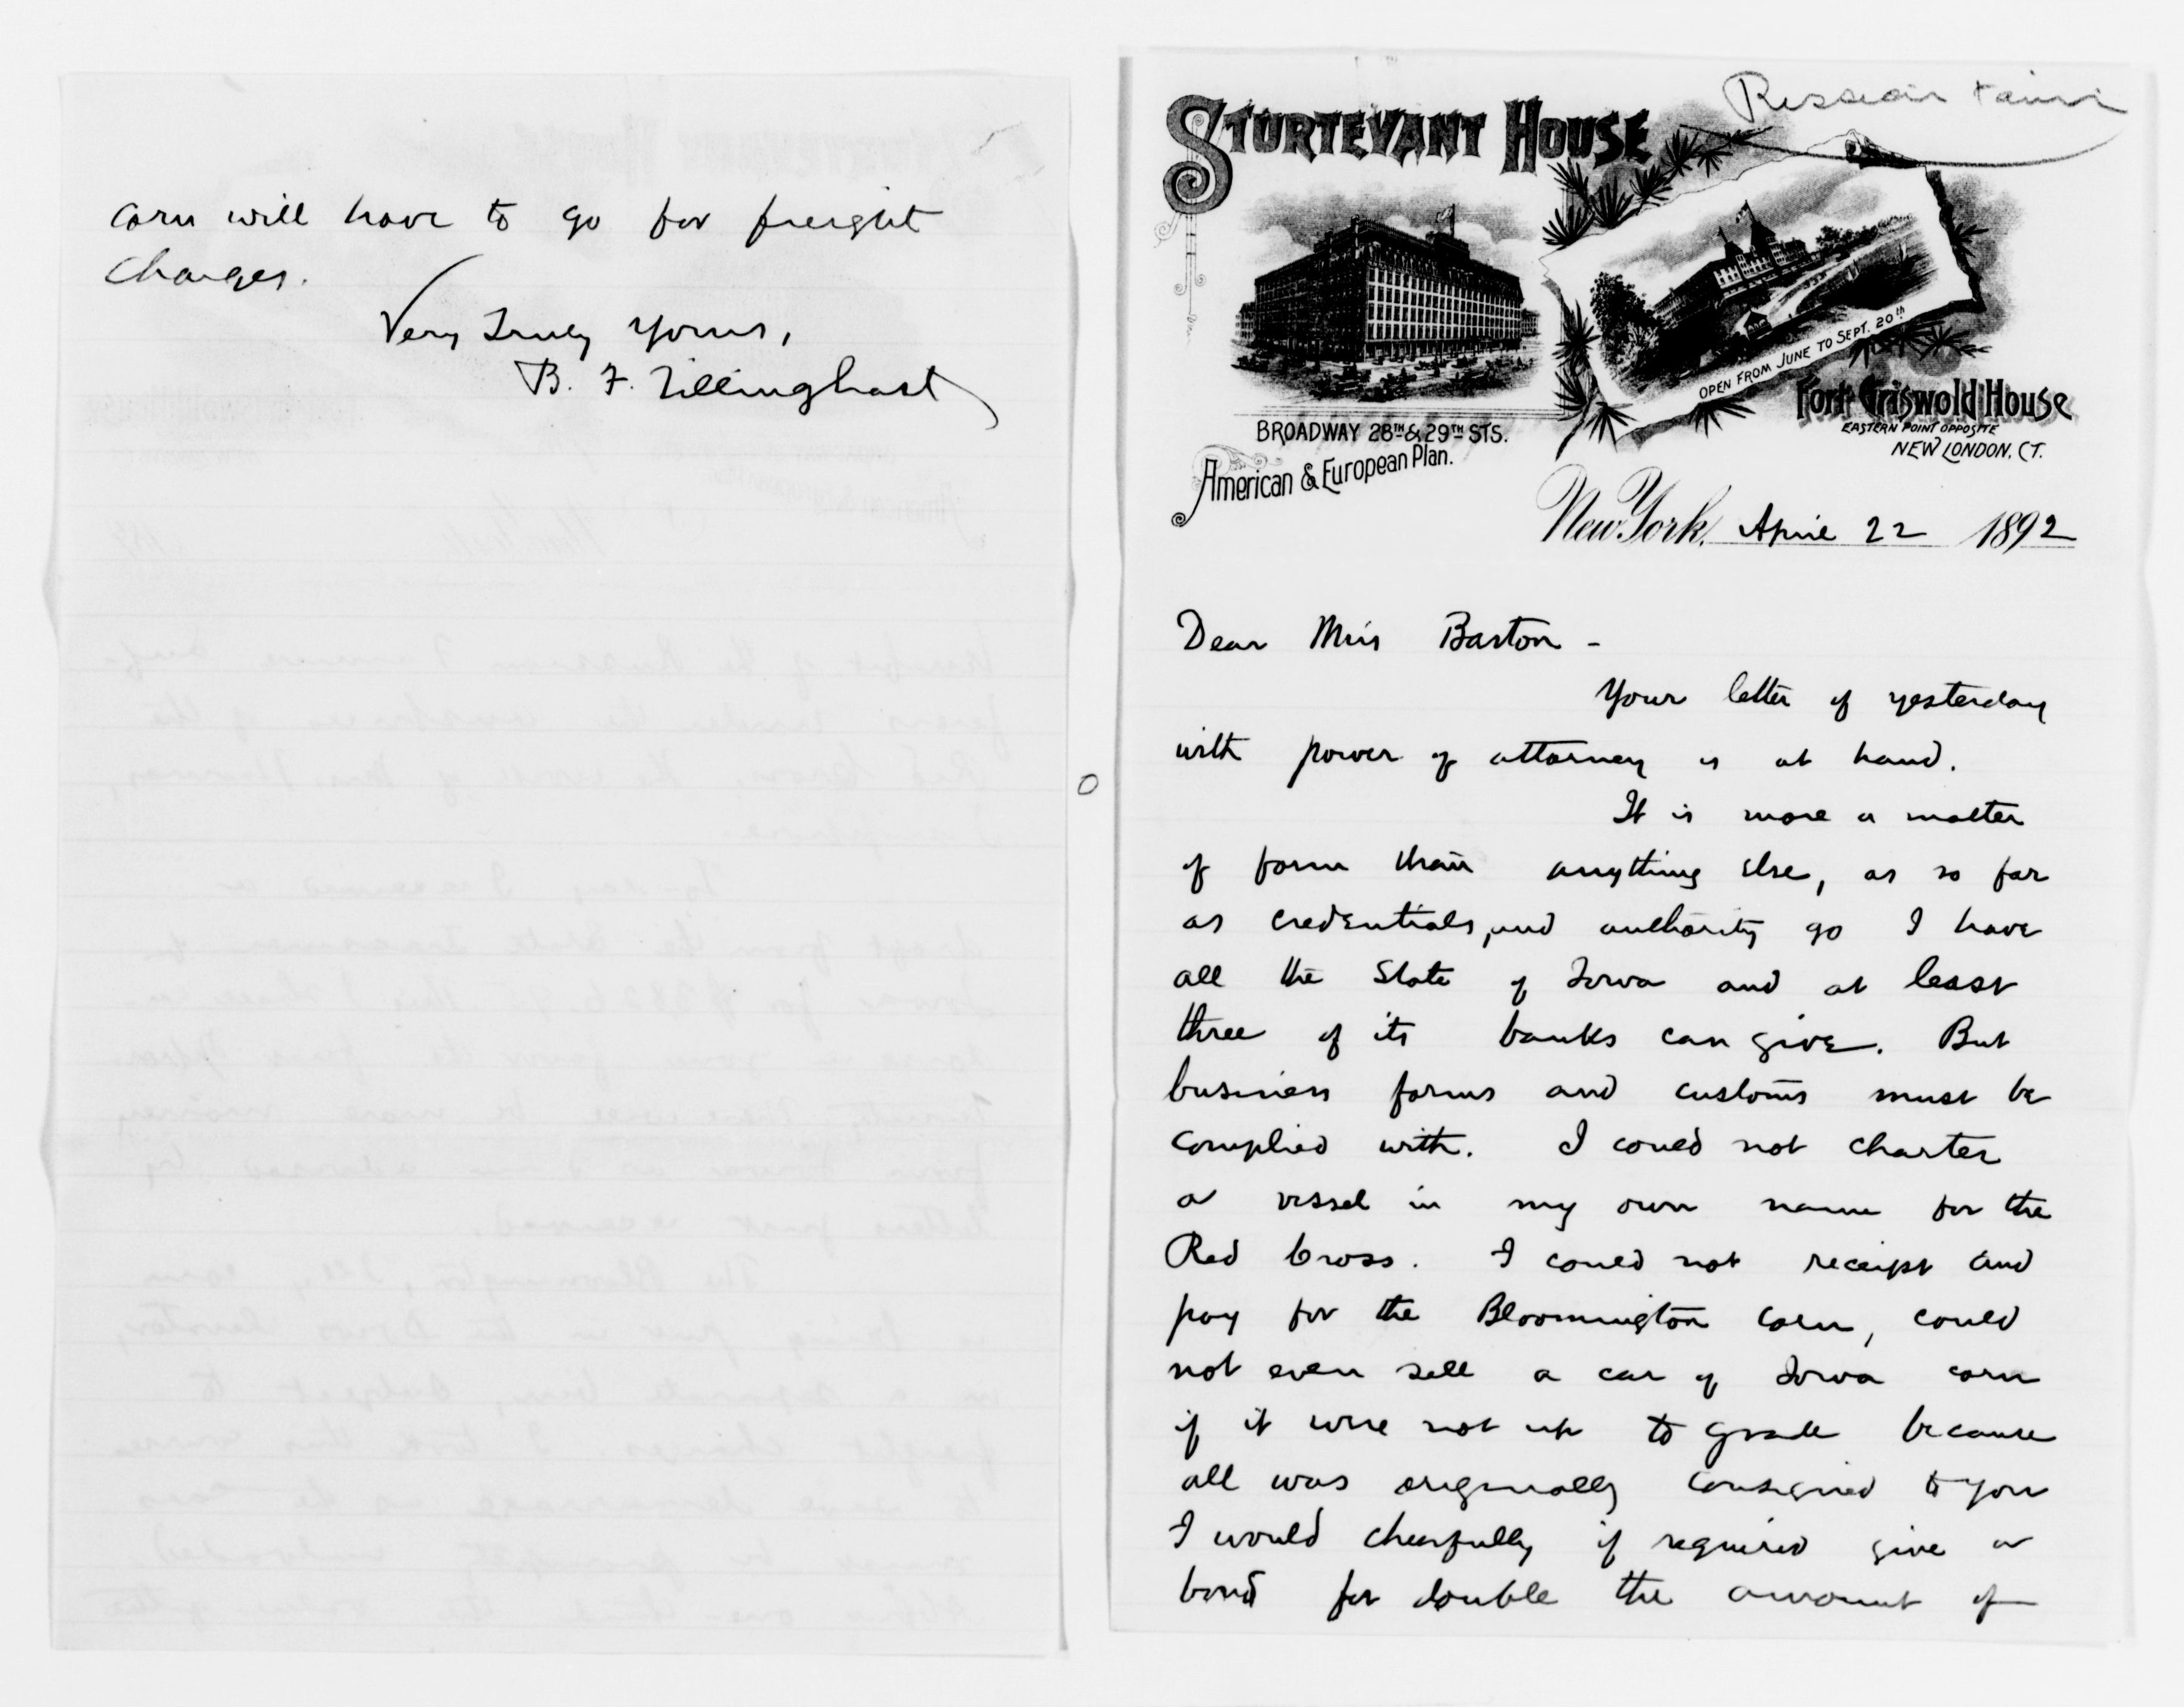 corn will have to go for freight
charges.
Very Truly Yours,
B. F. Tillinghast
Russian
STURTEVANT HOUSE
OPEN FROM JUNE TO SEPT. 20th
Fort Griswold House
EASTERN POINT OPPOSITE
NEW LONDON, CT.
BROADWAY 28TH & 29TH STS.
American & European Plan.
New York, April 22 1892
Dear Miss Barton -
Your letter of yesterday
with power of attorney is at hand.
It is more a matter
of form than anything else, as so far
as credentials, and authority go I have
all the State of Iowa and at least
three of its banks can give. But
business forms and customs must be
complied with. I could not charter
a vessel in my own name for the
Red Cross. I could not receipt and
pay for the Bloomington corn, could
not even sell a car of Iowa corn
if it were not up to grade because
all was originally consigned to you
I would cheerfully if required give a
bond for double the amount of